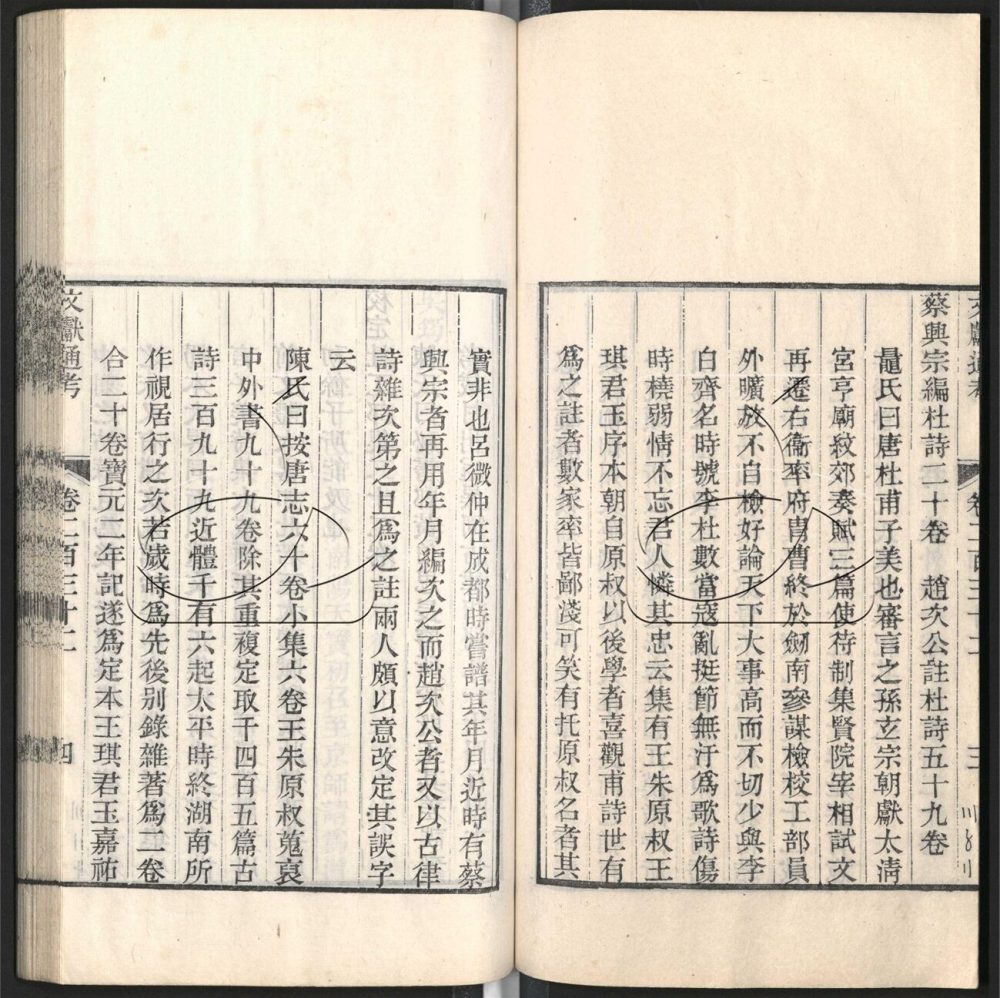 文獻通考 卷二百三十二 三
蔡興宗編杜詩二十卷 趙次公註杜詩五十九卷
鼂氏曰唐杜甫子美也審言之孫玄宗朝獻太清
宮亨廟紋郊奏賦三篇使待制集賢院宰相試文
再遷右衞率府胄曹終於劒南參謀檢校工部員
外曠放不自檢好論天下大事高而不切少與李
白齊名時號李杜數當寇亂挺節無汙爲歌詩傷
時橈弱情不忘君人憐其忠云集有王朱原叔王
琪君玉序本朝自原叔以後學者喜觀甫詩世有
爲之註者數家率皆鄙淺可笑有托原叔名者其
實非也呂微仲在成都時嘗譜其年月近時有蔡
興宗者再用年月編次之而趙次公者又以古律
詩雜次第之且爲之註兩人頗以意改定其誤字
云
陳氏曰按唐志六十卷小集六卷王朱原叔蒐裒
中外書九十九卷除其重複定取千四百五篇古
詩三百九十九近體千有六起太平時終湖南所
作視居行之次若歲時爲先後別錄雜著爲二卷
合二十卷寶元二年記遂爲定本王琪君玉嘉祐
文獻通考 卷二百三十二 四